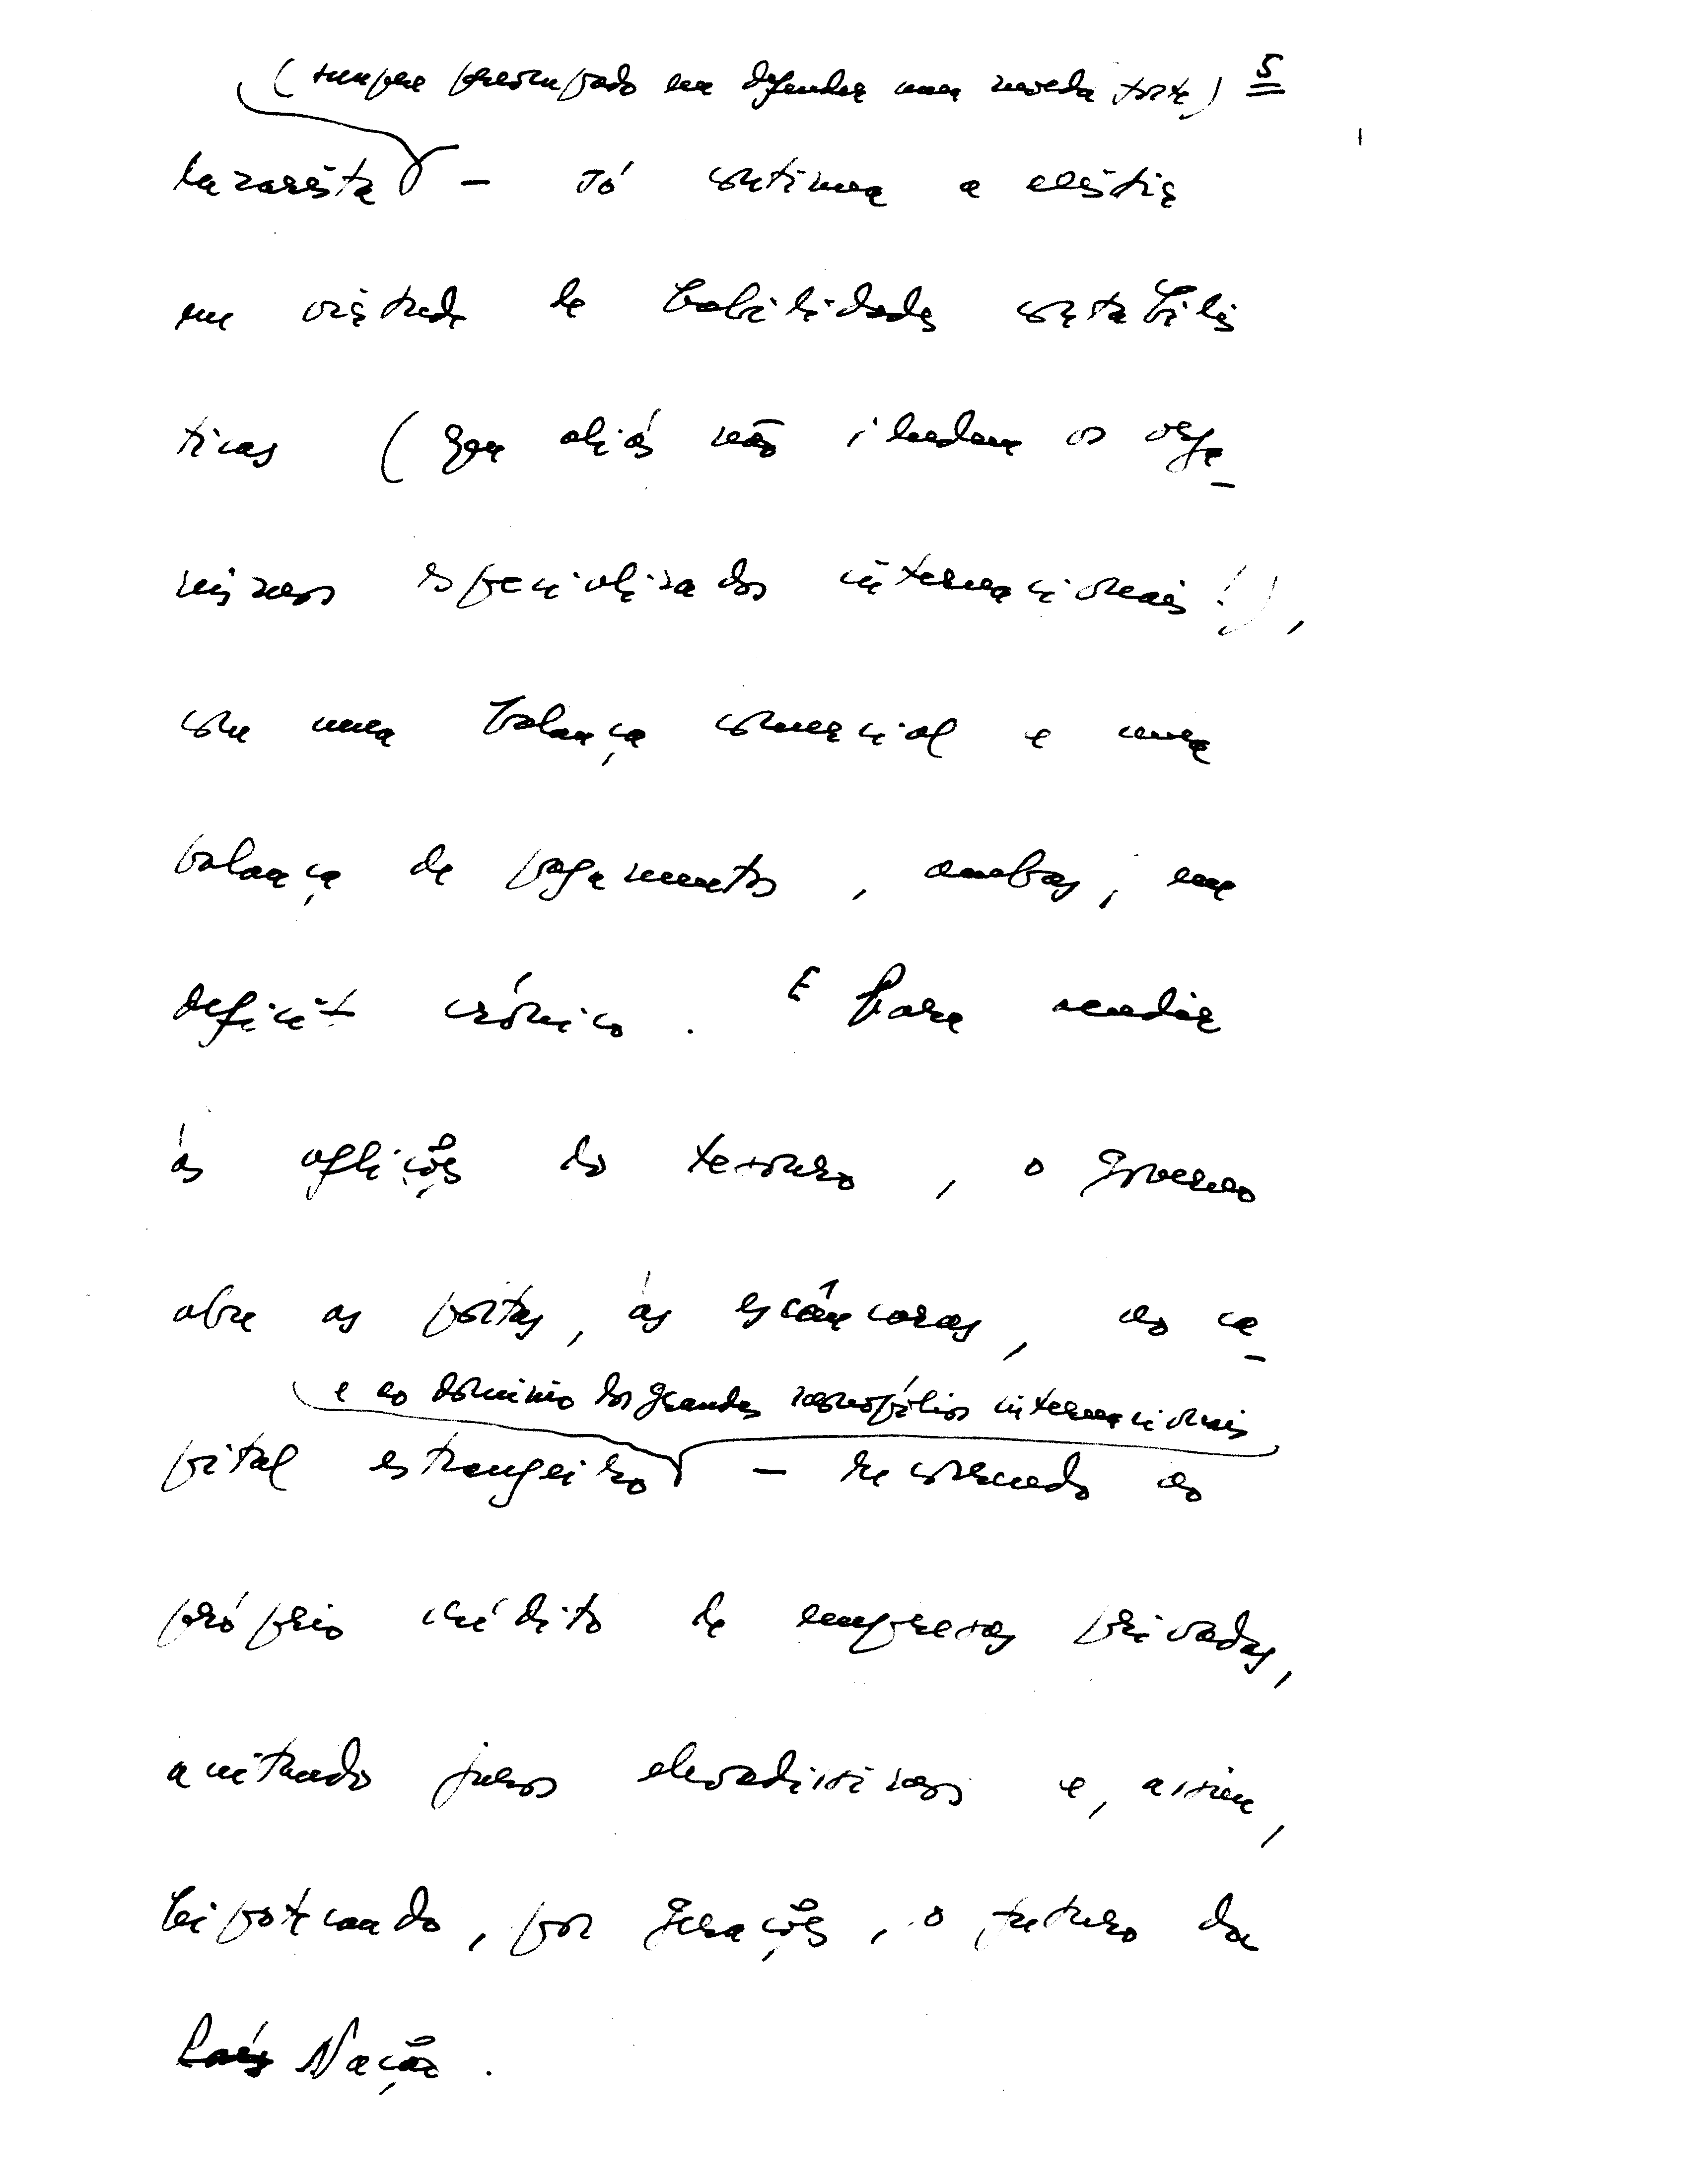 (sempre preocupado em defender uma moeda forte) 5
lazarista — só continua a existir
em virtude de habilidades contabilís
ticas (que aliás não iludem os orga-
nismos especializados internacionais!),
com uma balança comercial e uma
balança de pagamentos, ambas, em
deficit crónico. E para acudir
às aflições do tesouro, o governo
abre as portas, às escâncaras, ao ca-
e ao dominio dos grandes monopólios internacionais
pital estrangeiro — recorrendo ao
próprio crédito de empresas privadas,
aceitando juros elevadissimos e, assim,
hipotecando, por gerações, o futuro da
País Nação.